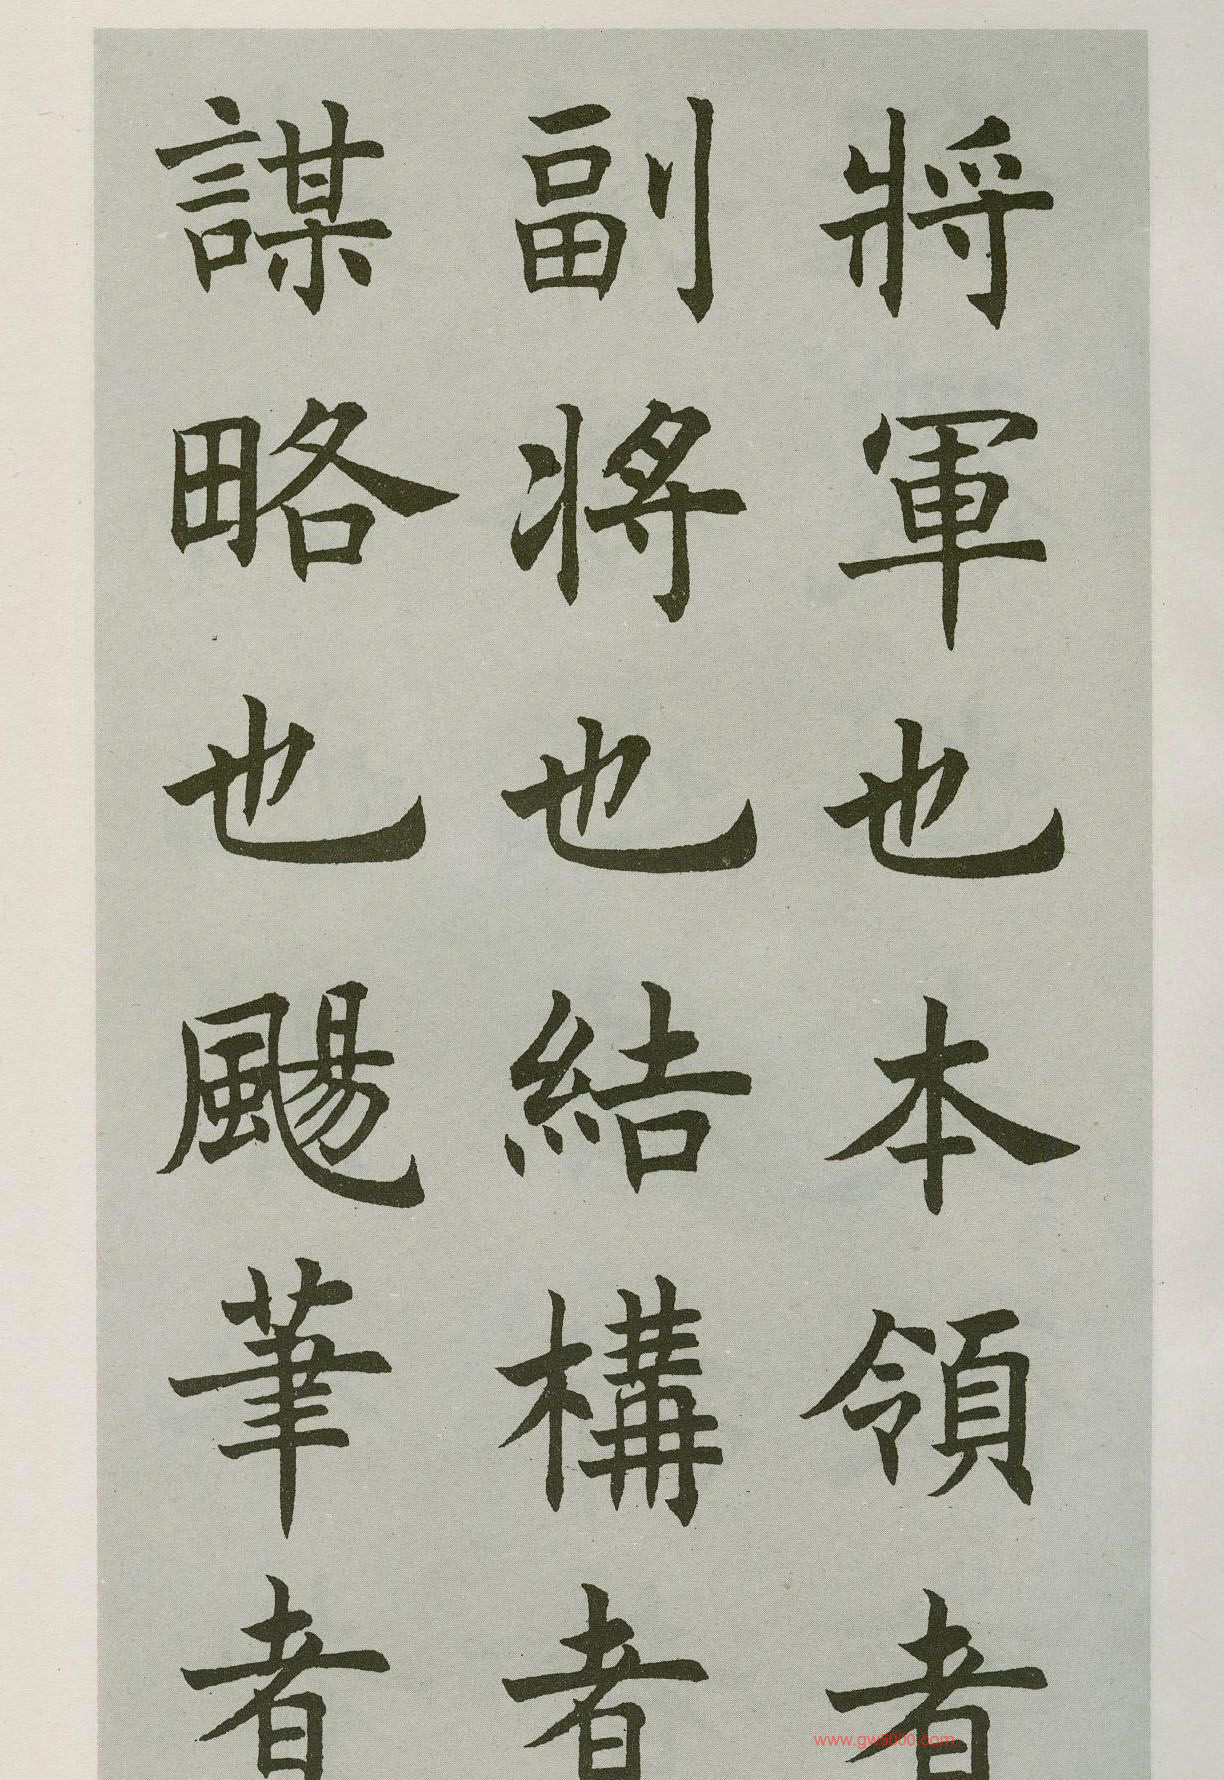 將軍也本領者
副將也結構者
謀略也颺筆者
www.gws000.com